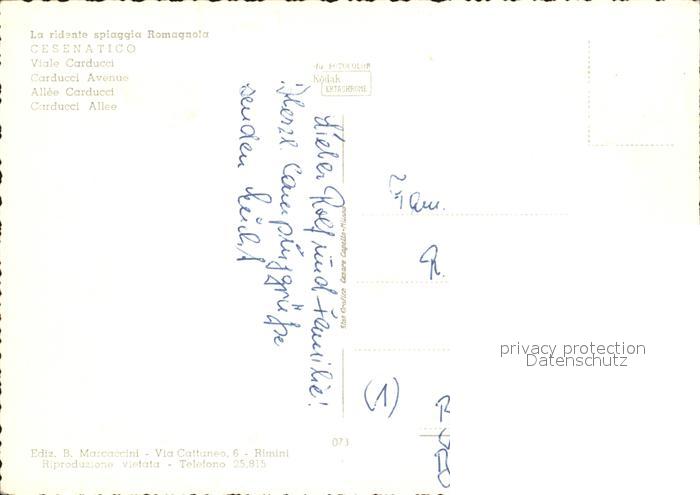 La ridente spiaggia Romagnola
CESENATICO
Viale Carducci
Carducci Avenue
Allée Carducci
Carducci Allee
da FOTOCOLOR
Kodak
EKTACHROME
Lieber Rolf und Familie!
Herzl. Campinggrüße
senden
Fam.
R.
(1)
privacy protection
Datenschutz
073
Ediz. B. Marcaccini - Via Cattaneo, 6 - Rimini
Riproduzione vietata - Telefono 25.815